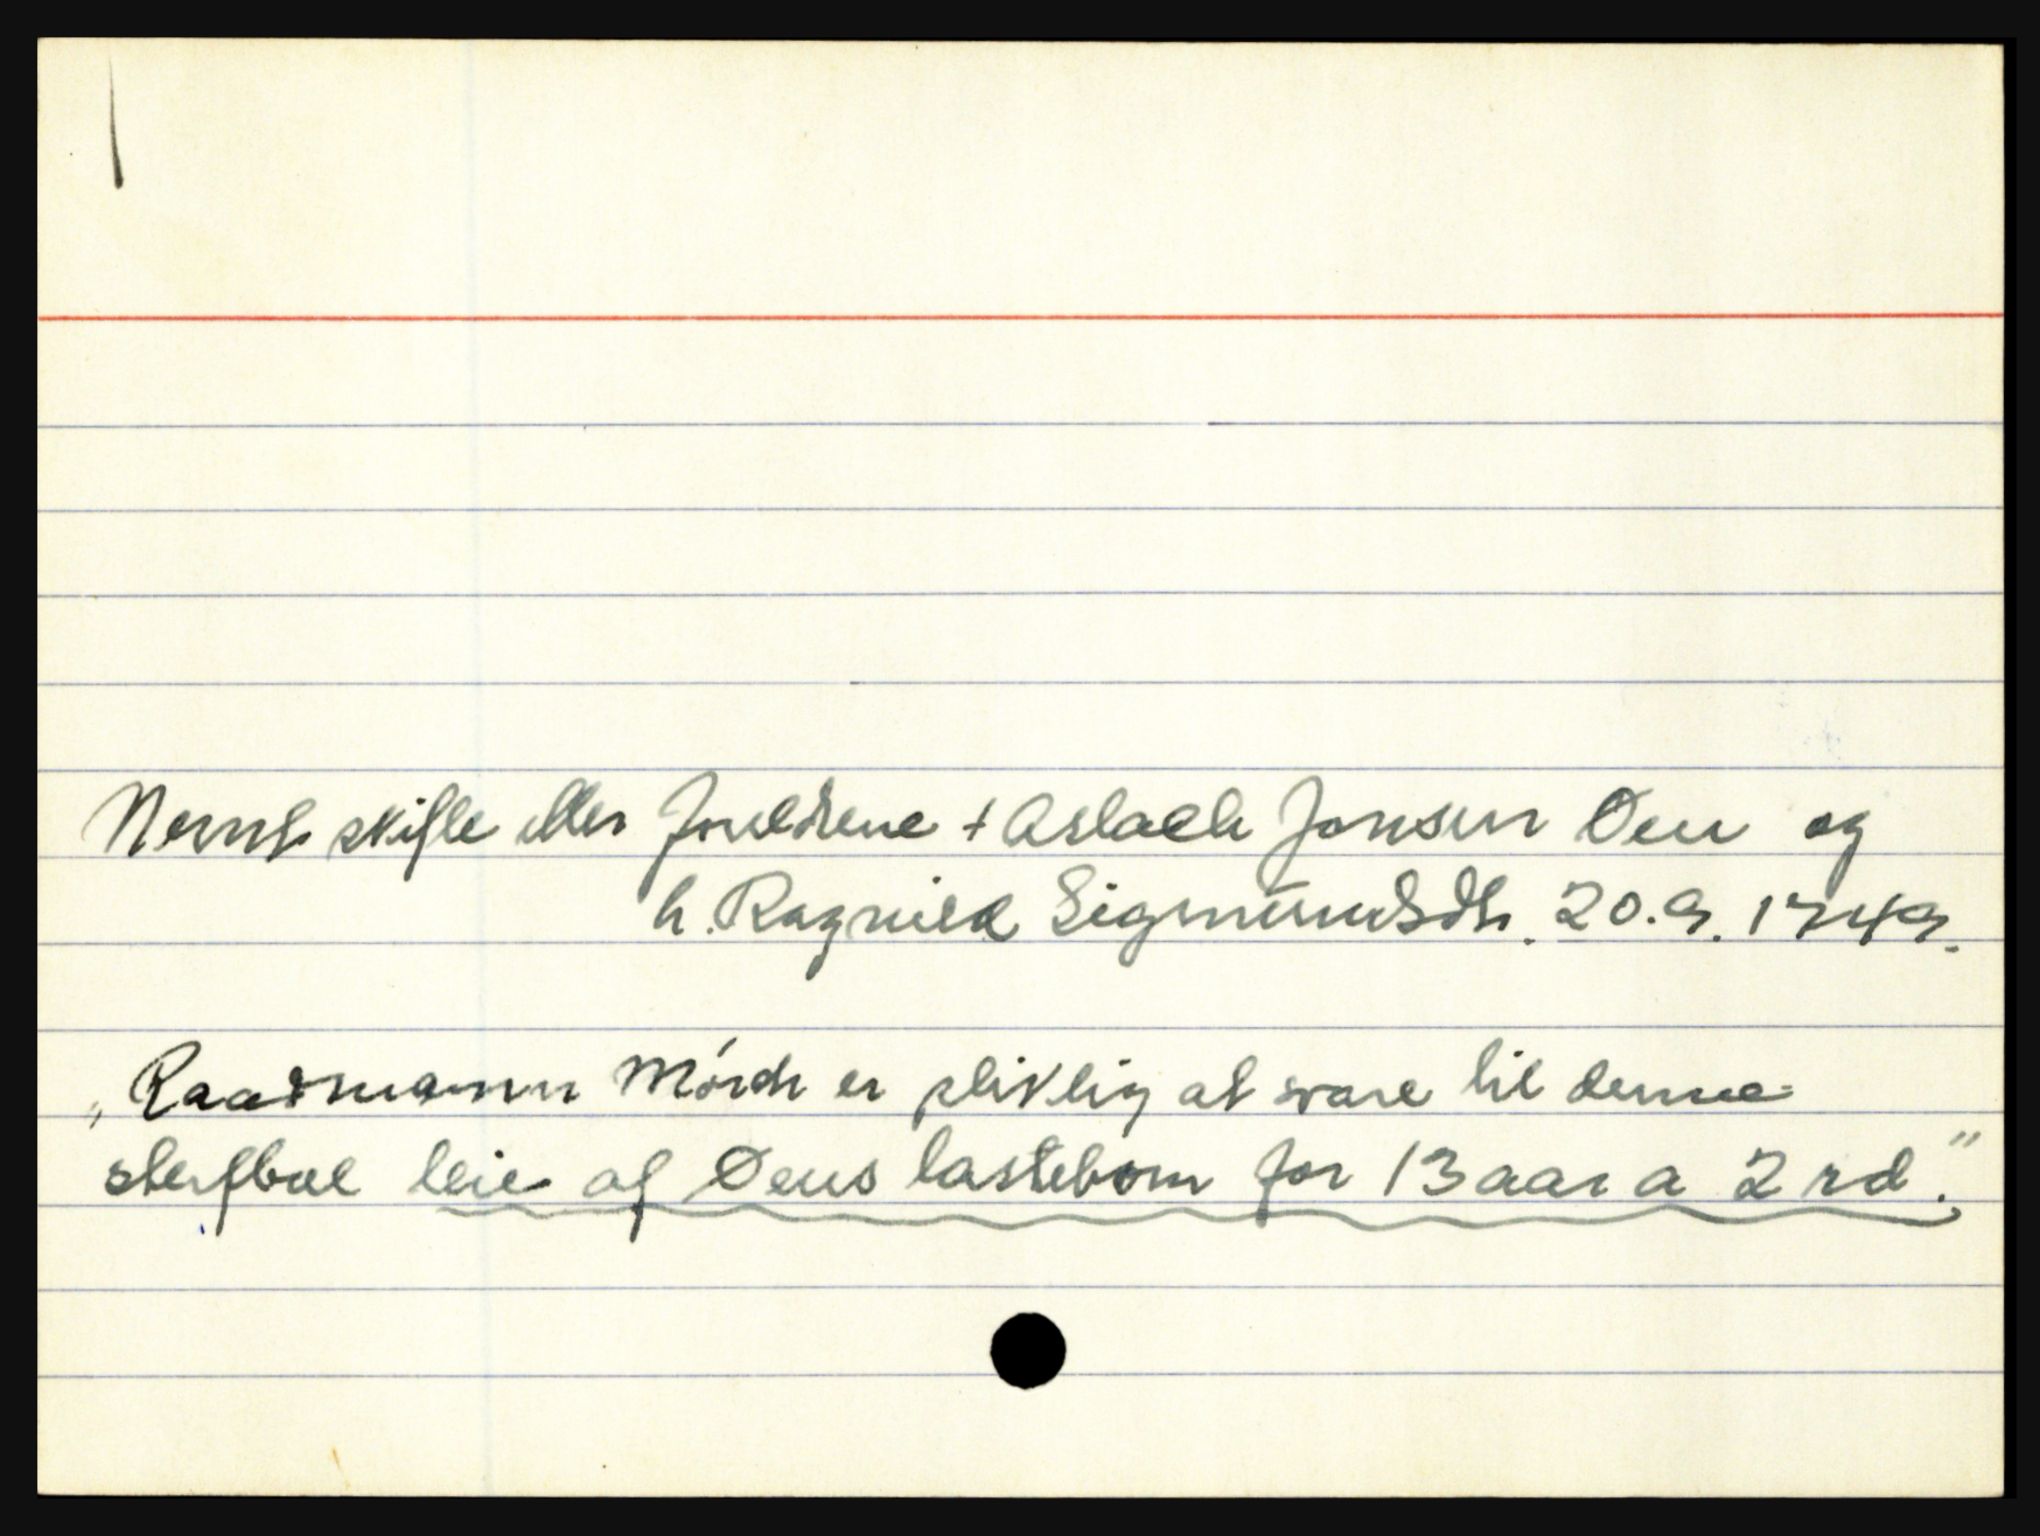 skifte etter foreldrene + Aslach Jonsen Øen og
h. Ragnild Sigmundsdtr. 20.9.1749.
„Raadmann Mörch er pliktig at svare til denne
sterfboe leie af Øens lastebom for 13 aar a 2 rd."